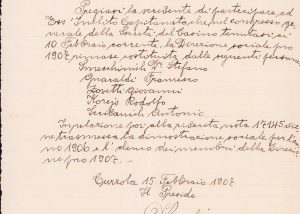 Pregiasi la scrivente di partecipare, ad
Ess. Inclito Capitanato, che nel congresso ge-
nerale della Società del Casino tenutasi ai
10 Febbraio corrente, la Direzione sociale pro
1907 rimase costituita dalle seguenti persone
Smerchinich Dr. Stefano
Gnaraldi Francesco
Zoretti Giovanni
Korejo Rodolfo
Antonio
relazione poi alla riverita nota 17145
trasmessa la dimostrazione sociale per l'an
no 1906 e l'elenco dei membri della Direzio
ne pro 1907.
Curzola 15 Febbraio 1907
Il Preside